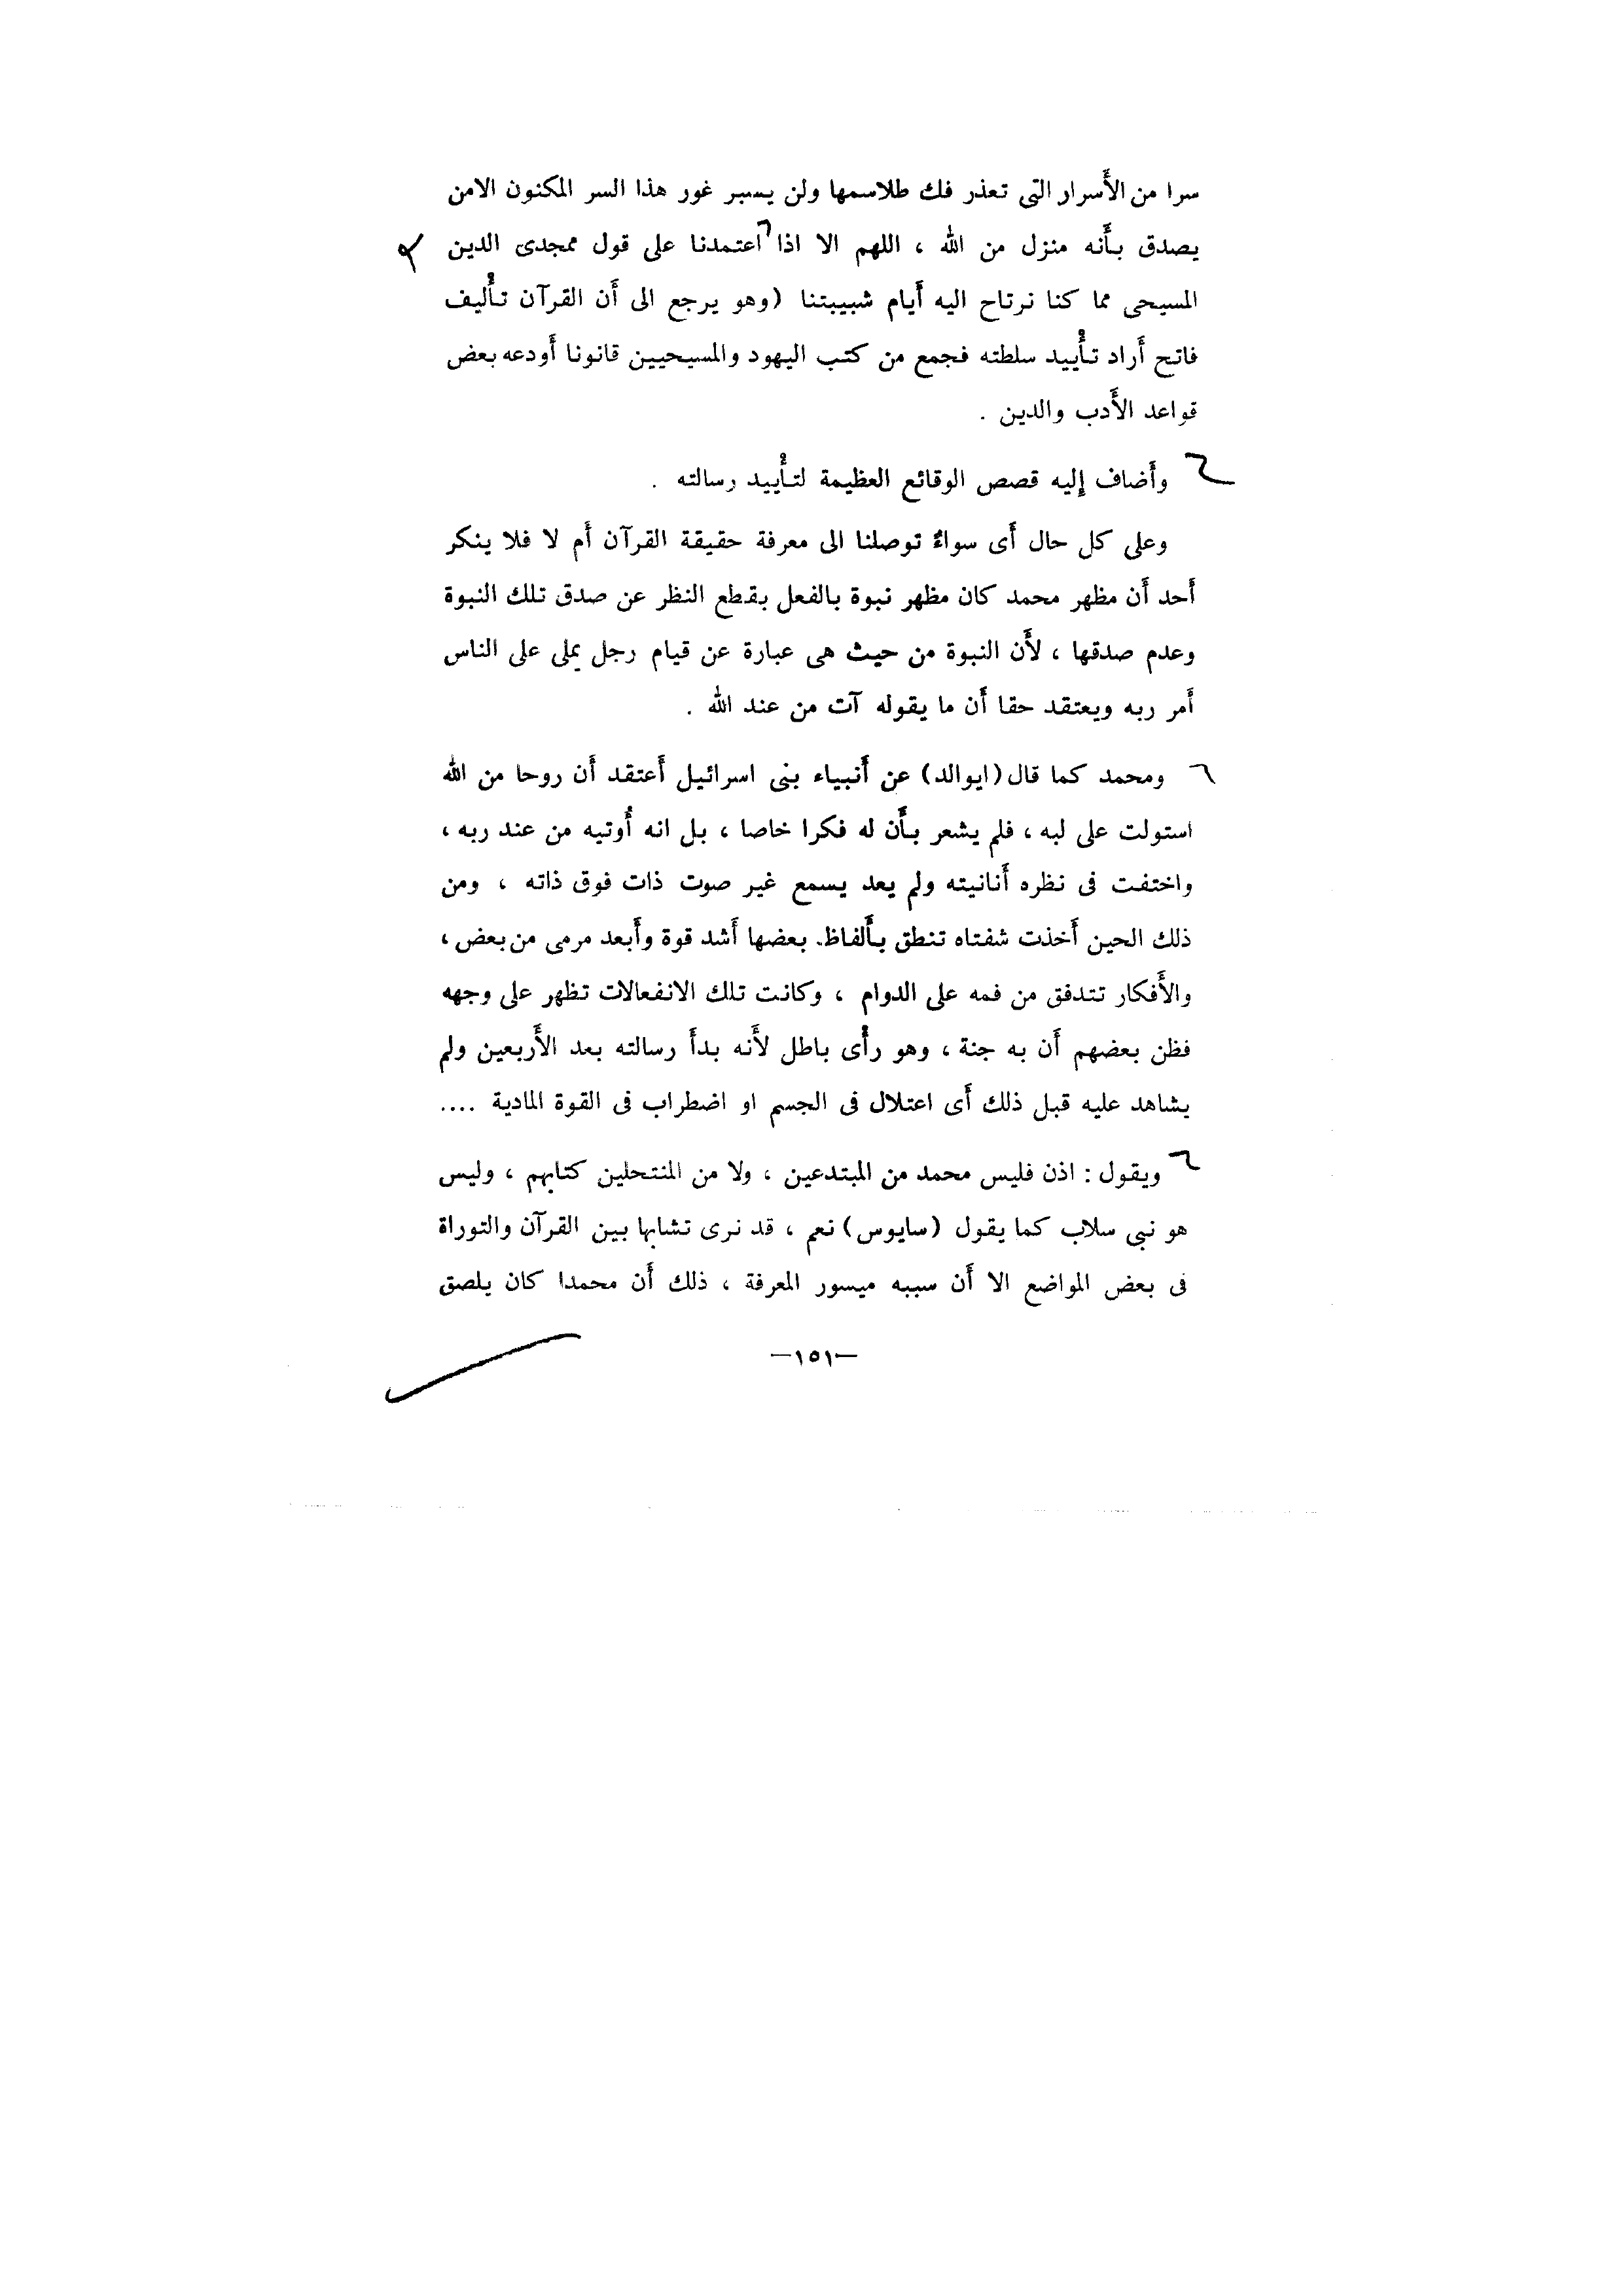 سرا من الأسرار التى تعذر فك طلاسمها ولن يسبر غور هذا السر المكنون الامن
يصدق بأنه منزل من الله ، اللهم الا اذا اعتمدنا على قول ممجدى الدين
المسيحى مما كنا نرتاح اليه أيام شبيبتنا (وهو يرجع الى أن القرآن تأليف
فاتح أراد تأييد سلطته فجمع من كتب اليهود والمسيحيين قانونا أودعه بعض
قواعد الأدب والدين .
وأضاف إليه قصص الوقائع العظيمة لتأييد رسالته .
وعلى كل حال أى سواءٌ توصلنا الى معرفة حقيقة القرآن أم لا فلا ينكر
أحد أن مظهر محمد كان مظهر نبوة بالفعل بقطع النظر عن صدق تلك النبوة
وعدم صدقها ، لأن النبوة من حيث هى عبارة عن قيام رجل يملى على الناس
أمر ربه ويعتقد حقا أن ما يقوله آت من عند الله .
ومحمد كما قال (ايوالد) عن أنبياء بنى اسرائيل أعتقد أن روحا من الله
استولت على لبه ، فلم يشعر بأن له فكرا خاصا ، بل انه أُوتيه من عند ربه ،
واختفت فى نظره أنانيته ولم يعد يسمع غير صوت ذات فوق ذاته ، ومن
ذلك الحين أخذت شفتاه تنطق بألفاظ. بعضها أشد قوة وأبعد مرمى من بعض ،
والأفكار تتدفق من فمه على الدوام ، وكانت تلك الانفعالات تظهر على وجهه
فظن بعضهم أن به جنة ، وهو رأى باطل لأنه بدأ رسالته بعد الأربعين ولم
يشاهد عليه قبل ذلك أى اعتلال فى الجسم او اضطراب فى القوة المادية ....
ويقول : اذن فليس محمد من المبتدعين ، ولا من المنتحلين كتابهم ، وليس
هو نبى سلاب كما يقول (سايوس) نعم ، قد نرى تشابها بين القرآن والتوراة
فى بعض المواضع الا أن سببه ميسور المعرفة ، ذلك أن محمدا كان يلصق
—١٥١—